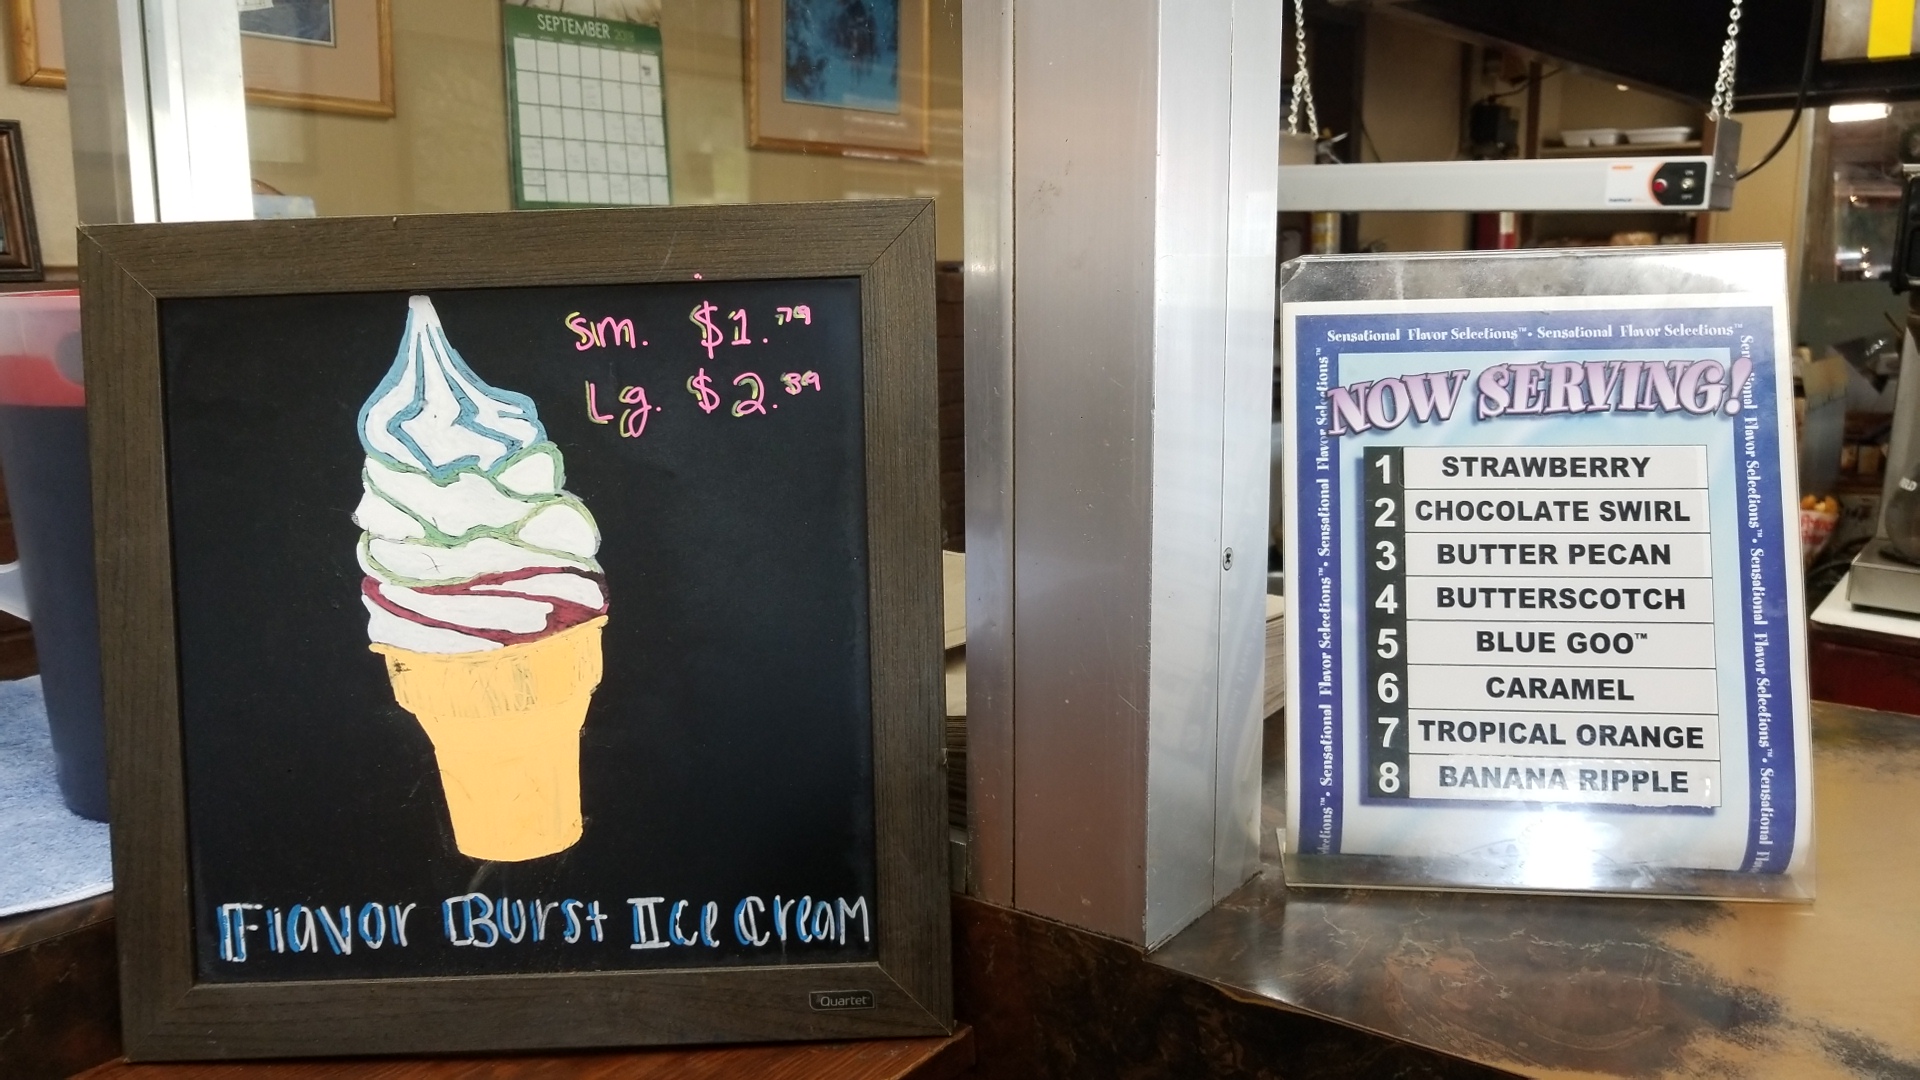 SEPTEMBER 2018
Sm. $1.79
Lg. $2.89
Flavor Burst Ice Cream
Quartet
Sensational Flavor Selections™• Sensational Flavor Selections™
NOW SERVING!
1 STRAWBERRY
2 CHOCOLATE SWIRL
3 BUTTER PECAN
4 BUTTERSCOTCH
5 BLUE GOO™
6 CARAMEL
7 TROPICAL ORANGE
8 BANANA RIPPLE
Sensational Flavor Selections™• Sensational Flavor Selections™•
Sensational Flavor Selections™• Sensational Flavor Selections™• Sensational